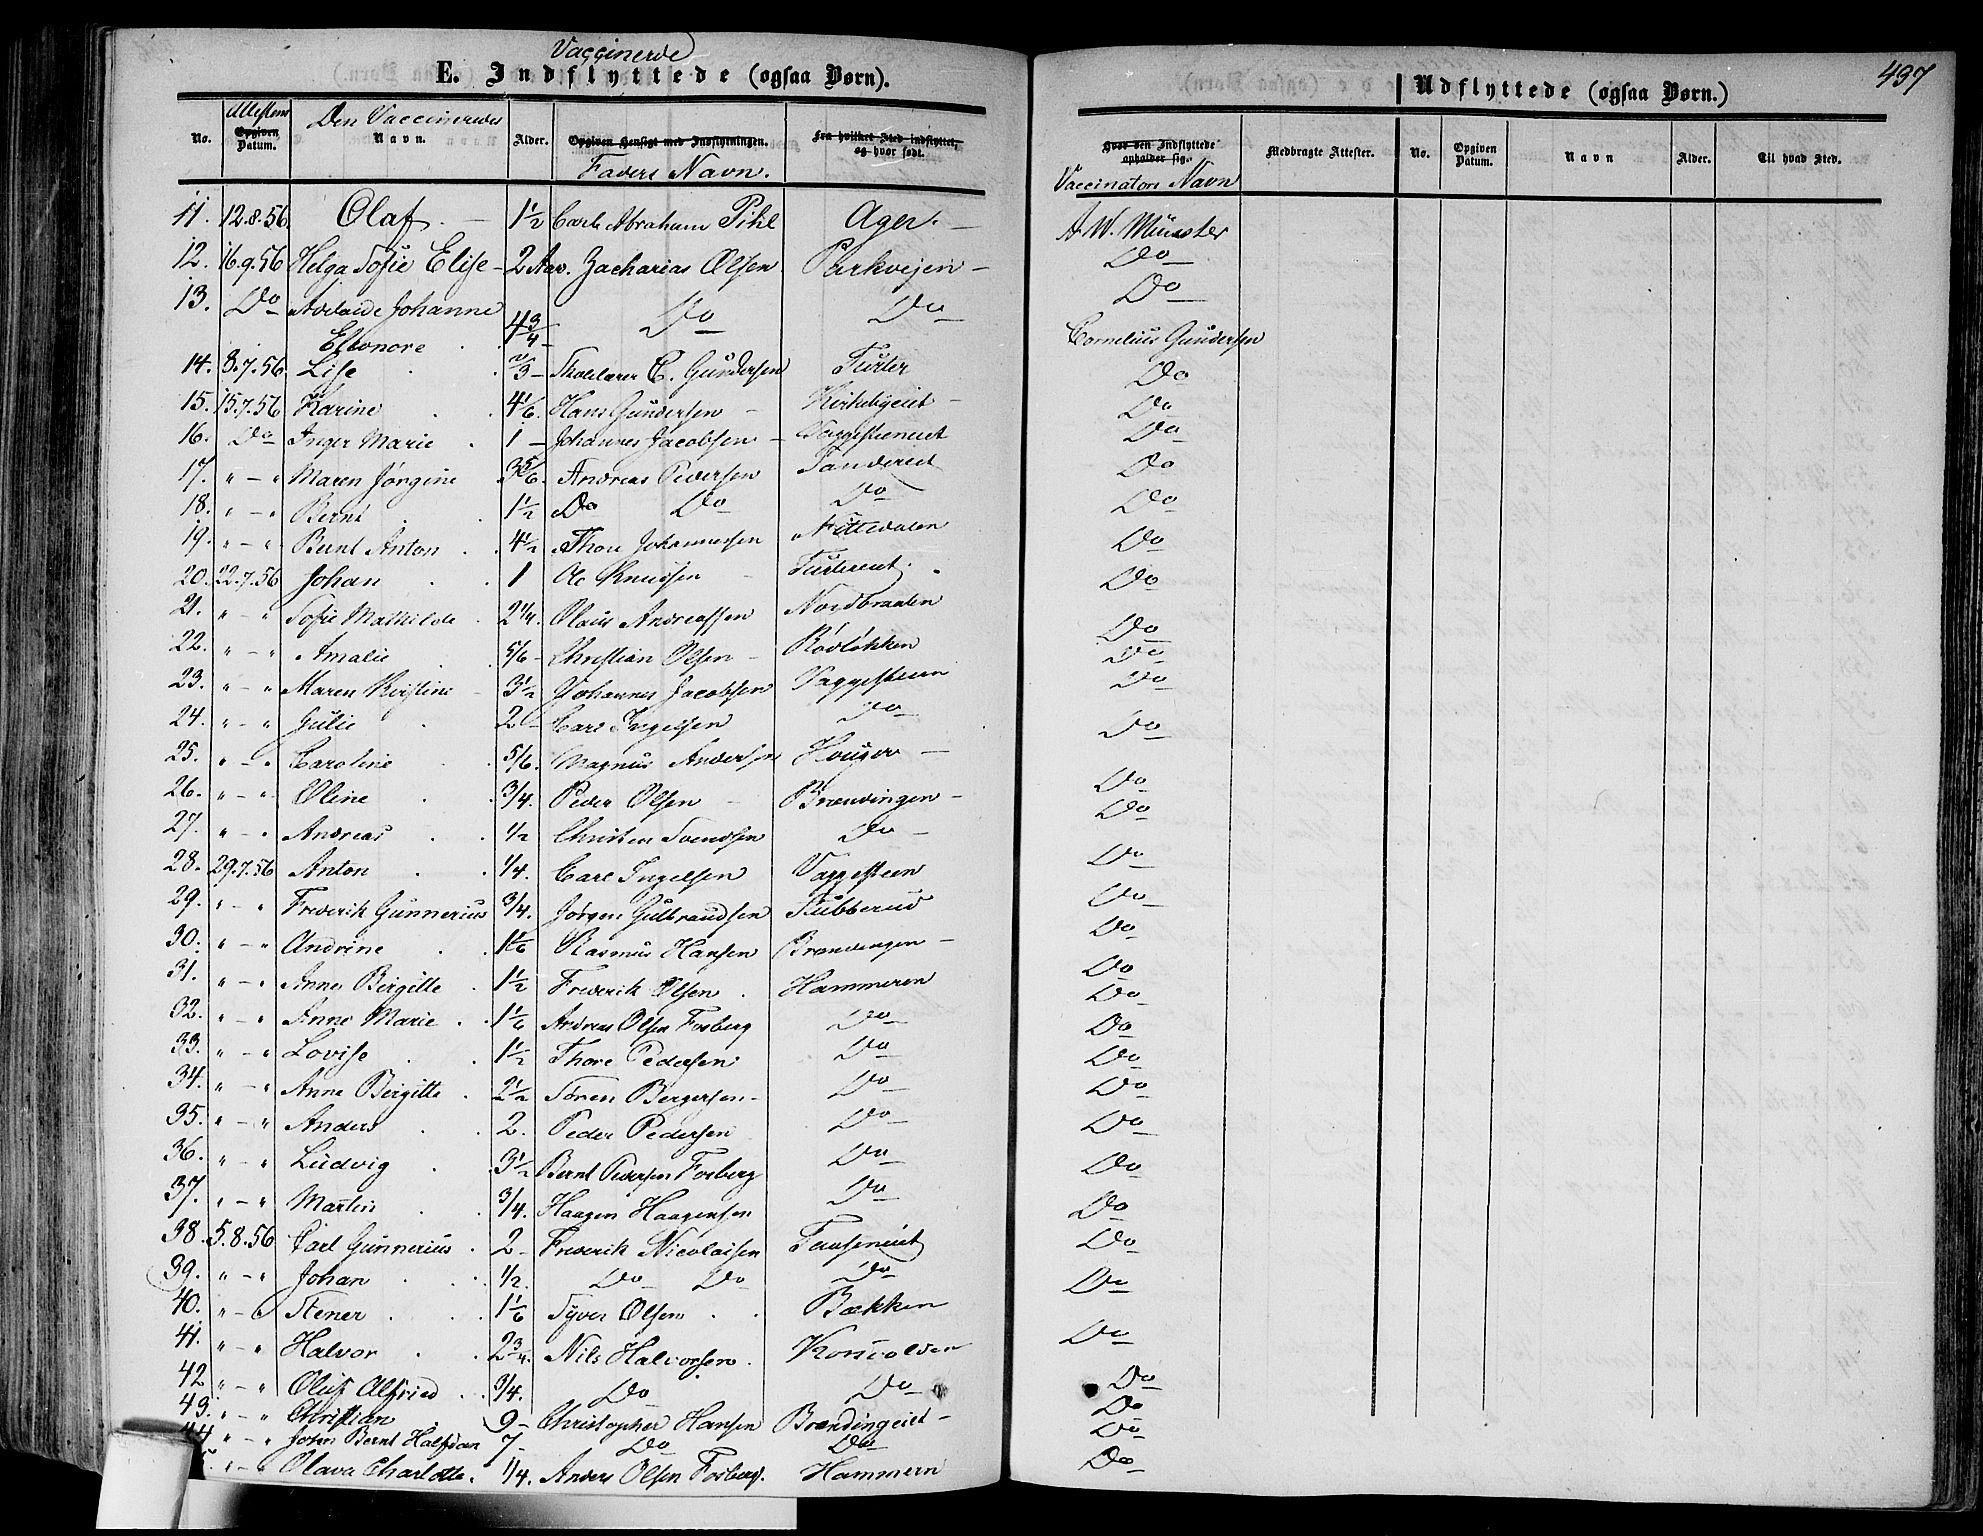 Vaccinerde
E. Indflyttede (ogsaa Børn).
Udflyttede (ogsaa Børn.)
437
No. Attestens Opgiven Datum. Den Vaccineredes Navn. Alder. Opgiven Hensigt med Indflytningen. Faders Navn. Fra hvilket Sted indflyttet, og hvor født. Hvor den Indflyttede opholder sig. Vaccinators Navn Medbragte Attester. No. Opgiven Datum. Navn Alder. Til hvad Sted.
11. 12.8.56. Olaf. 1½ Carl Abraham Pihl Ager. A W. Münster
12. 16.9.56 Helga Sofie Elise 2 Aar. Zacharias Olsen Parkvejen Do
13. Do Adelaide Johanne Do Do Do
Eleonore 4¾
14. 8.7.56. Lise ⅔ C. Gundersen Turter Cornelius Gundersen
15. 15.7.56 Karine 4⅙ Hans Gundersen Kirkebyeiet Do
16. Do Inger Marie 1 Johannes Jacobsen Vaggesteneiet Do
17. " " Maren Jørgine 3⅚ Andreas Pedersen Do
18. " " Bernt 1½ Do Do Do Do
19. " " Bernt Anton 4½ Thore Johannessen Nittedalen Do
20. 22.7.56 Johan 1 Ole Knudsen Turtereiet Do
21. " " Sofie Mathilde 2¼. Olaus Andreassen Nordbraaten Do
22. " " Amalie 5/6 Christian Olsen Rødløkken Do
23. " " Maren Kristine 3½ Johannes Jacobsen Vaggesteen Do
24. " " Gulie 2 Carl Ingelsen Do Do
25. " " Caroline 5/6. Magnus Andersen Houger Do
26. " " Oline 3/4. Peder Olsen Brændingen Do
27. " " Andreas ½ Christen Svendsen Do Do
28. 29.7.56 Anton ¼. Carl Ingelsen Vaggesteen Do
29. " " Frederik Gunnerius 3/4. Jørgen Gulbrandsen Stubberud Do
30. " " Andrine 1⅙ Rasmus Hansen Brændingen Do
31. " " Anne Birgitte 1½ Frederik Olsen Hammeren Do
32. " " Anne Marie 1⅙ Andreas Olsen Fosberg Do Do
33. " " Lovise 1½ Thore Pedersen Do Do
34. " " Anne Birgitte 2½ Søren Bergersen Do Do
35. " " Anders 2. Peder Pedersen Do Do
36. " " Ludvig 3½ Bernt Pedersen Fosberg Do Do
37. " " Martin 3/4. Haagen Haagensen Do Do
38. 5.8.56 Carl Gunnerius 2 Frederik Nicolaisen Do
39. " " Johan ½. Do Do Do Do
40. " " Stener 1⅙ Syver Olsen Bækken Do
41. " " Halvor 2¾. Nils Halvorsen Do
42 " " Oluf Alfried 3/4. Do Do Do
43. " " Christian 9 Christopher Hansen Brændingeiet Do
44 " " Johan Bernt Halfdan 7 Do Do Do
" " Olava Charlotte. ¼. Anders Olsen Fosberg. Hammern Do